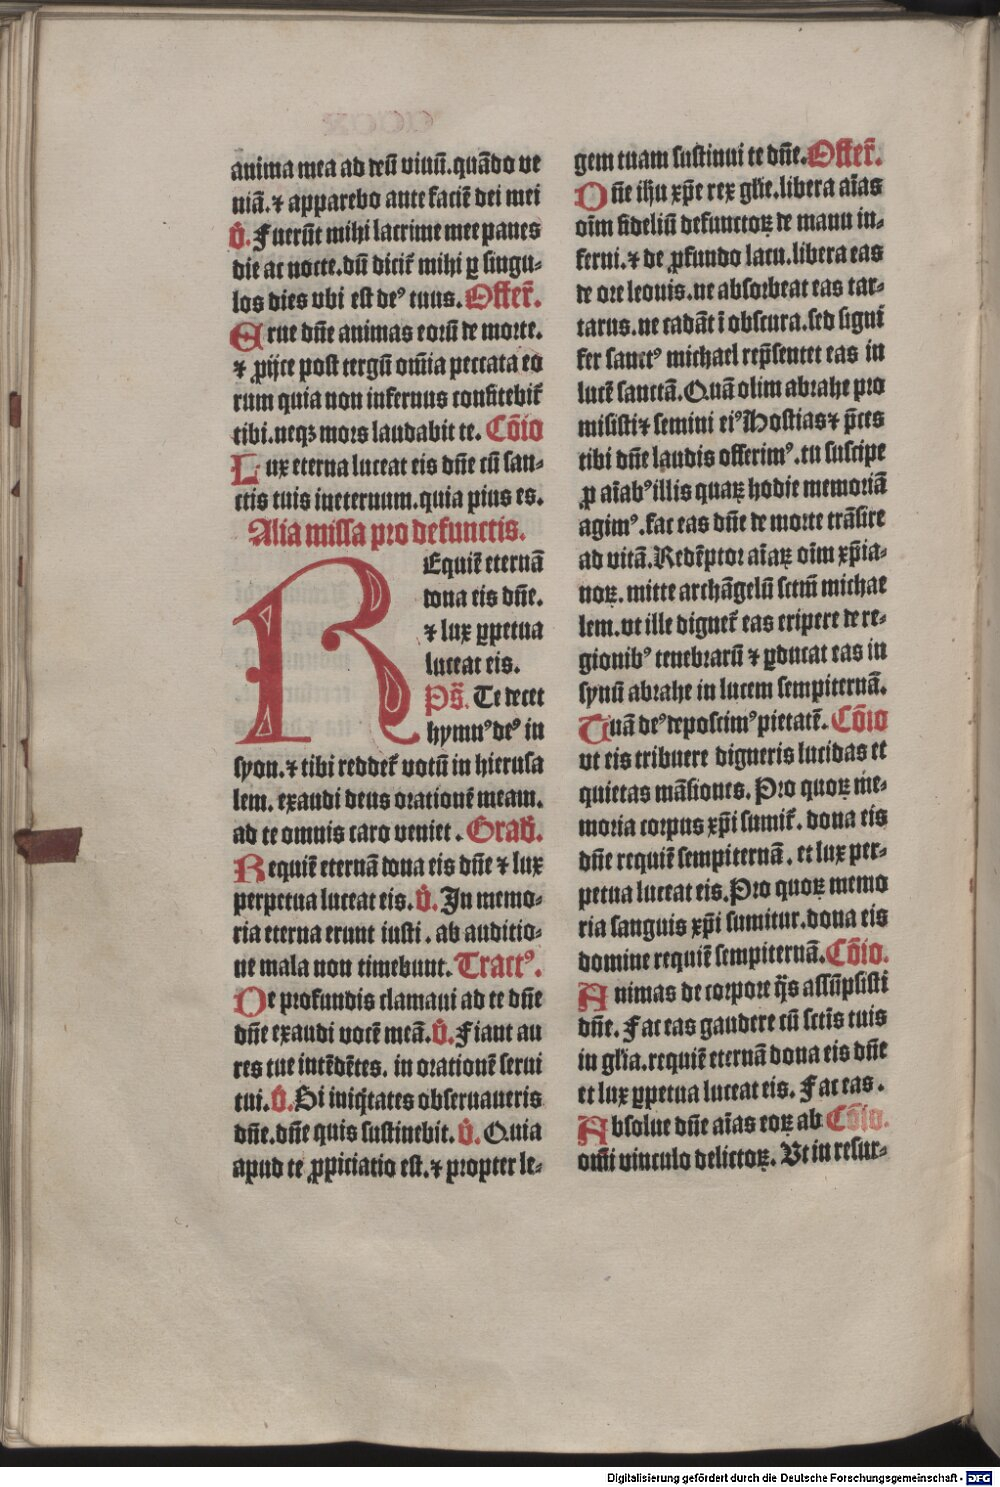 anima mea ad deū viuū.quādo ve
niā.⁊ apparebo ante faciē dei mei
V̊. Fuerūt mihi lacrime mee panes
die ac nocte.dū dicit᷑ mihi ꝑ singu⸗
los dies vbi est deꝰ tuus. Offer̄.
Erue dn̄e animas eorū de morte.
⁊ ꝓijce post tergū om̄ia peccata eo
rum quia non infernus confitebit᷑
tibi.neqꝫ mors laudabit te. Cōio
Lux eterna luceat eis dn̄e cū san⸗
ctis tuis ineternum.quia pius es.
Alia missa pro defunctis.
REquiē eternā
dona eis dn̄e.
⁊ lux ꝑpetua
luceat eis.
Ps̄. Te decet
hymnꝰ deꝰ in
syon.⁊ tibi reddet᷑ votū in hierusa
lem. exaudi deus orationē meam.
ad te omnis caro veniet. Grad̄.
Requiē eternā dona eis dn̄e ⁊ lux
perpetua luceat eis. V̊. In memo⸗
ria eterna erunt iusti. ab auditio⸗
ne mala non timebunt. Tractꝰ.
De profundis clamaui ad te dn̄e
dn̄e exaudi vocē meā. V̊. Fiant au
res tue intēdētes. in orationē serui
tui. V̊. Si iniq̇tates obseruaueris
dn̄e.dn̄e quis sustinebit. V̊. Quia
apud te ꝓpiciatio est.⁊ propter le⸗
gem tuam sustinui te dn̄e. Offer̄.
Dn̄e ih̄u xp̄e rex gl̄ie.libera aīas
oīm fideliū defunctoꝝ de manu in⸗
ferni.⁊ de ꝓfundo lacu.libera eas
de ore leonis.ne absorbeat eas tar⸗
tarus.ne cadāt ī obscura.sed signi
fer sanctꝰ michael rep̄sentet eas in
lucē sanctā. Quā olim abrahe pro
misisti ⁊ semini eiꝰ Hostias ⁊ p̄ces
tibi dn̄e laudis offerimꝰ.tu suscipe
ꝓ aīabꝰ illis quaꝝ hodie memoriā
agimꝰ.fac eas dn̄e de morte trāsire
ad vitā. Redēptor aīaꝝ oīm xp̄ia⸗
noꝝ.mitte archāgelū sctm̄ michae
lem.vt ille dignet᷑ eas eripere de re⸗
gionibꝰ tenebrarū ⁊ ꝑducat eas in
synū abrahe in lucem sempiternā.
Tuā deꝰ deposcimꝰ pietatē. Cōio
vt eis tribuere digneris lucidas et
quietas māsiones. Pro quoꝝ me⸗
moria corpus xp̄i sumit᷑. dona eis
dn̄e requiē sempiternā. et lux per⸗
petua luceat eis. Pro quoꝝ memo
ria sanguis xp̄i sumitur.dona eis
domine requiē sempiternā. Cōio.
Animas de corpore q̄s assūpsisti
dn̄e. Fac eas gaudere cū sctīs tuis
in gl̄ia.requiē eternā dona eis dn̄e
et lux ꝑpetua luceat eis. Fac eas.
Absolue dn̄e aīas eoꝝ ab Cōio.
om̄i vinculo delictoꝝ. Vt in resur⸗
Digitalisierung gefördert durch die Deutsche Forschungsgemeinschaft - DFG